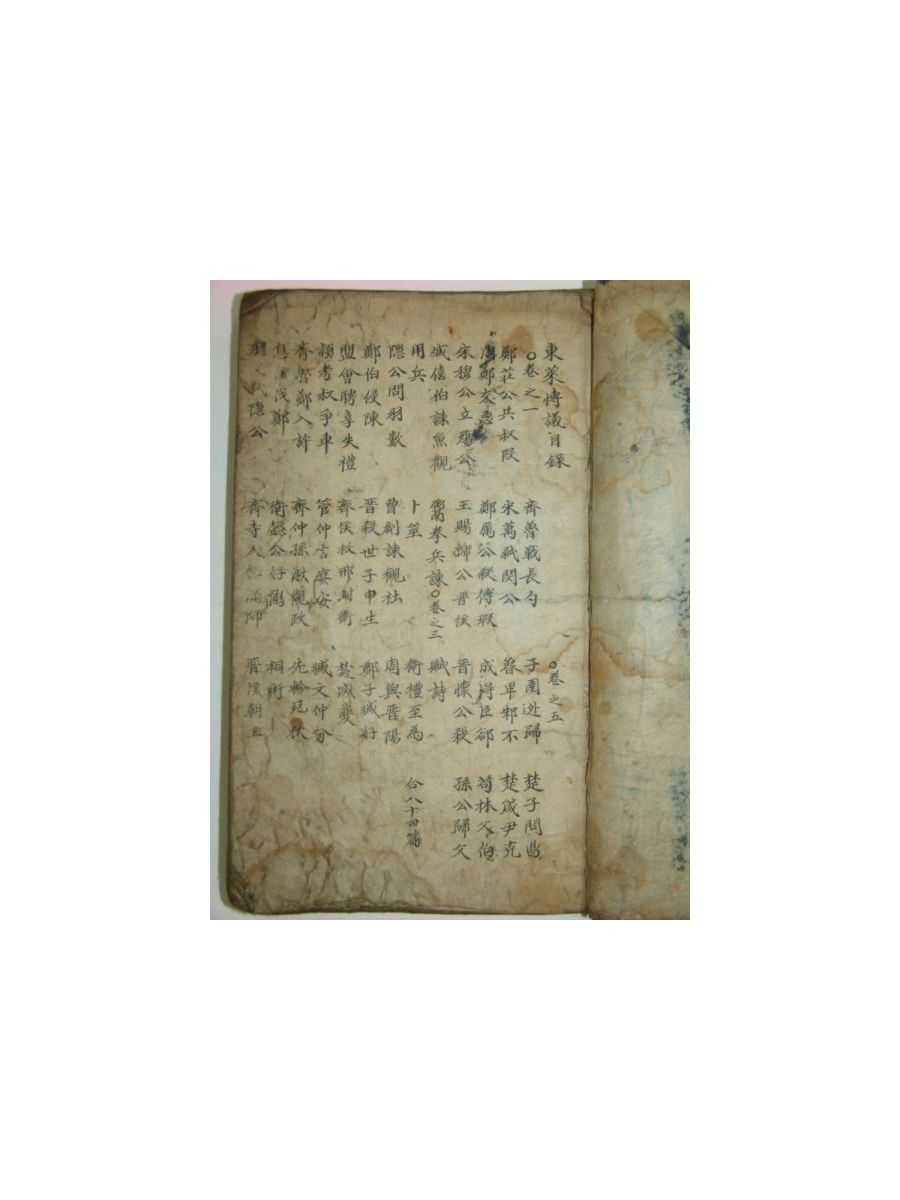 東萊博議目錄
○卷之一
鄭莊公共叔段
周鄭交惡
宋穆公立殤公
臧僖伯諫魚觀
用兵
隱公問羽數
鄭伯侵陳
盟會聘享失禮
頴考叔爭車
齊魯鄭入許
息侯伐鄭
父弑隱公
齊魯戰長勺
宋萬弑閔公
鄭厲公殺傅瑕
王賜虢公晋侯
鬻拳兵諫○卷之三
卜筮
曺劌諫觀社
晋殺世子申生
齊侯救邢封衛
管仲言宴安
齊仲孫湫觀政
衛懿公好鶴
齊寺人貂漏師
○卷之五
子圉逃歸
魯卑邾不
成得臣郤
晋懷公殺
賦詩
衛禮至為
周與晋陽
鄭子臧好
楚滅夔
臧文仲分
先軫死狄
相術
晋侯朝王
楚子問鼎
楚箴尹克
荀林父伯
孫公歸父
合八十四篇